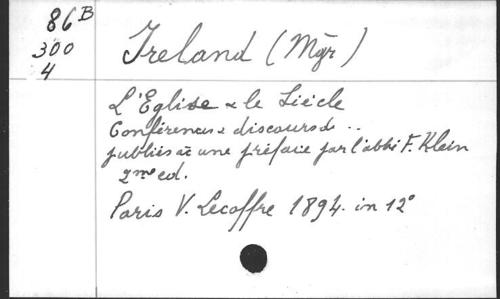 86B
300
4
Ireland (Mgr)
L'Eglise & le Siècle
Conférences & discours de ..
publiés ac une préface par l'abbé F. Klein
2me ed.
Paris V. Lecoffre 1894. in 12°